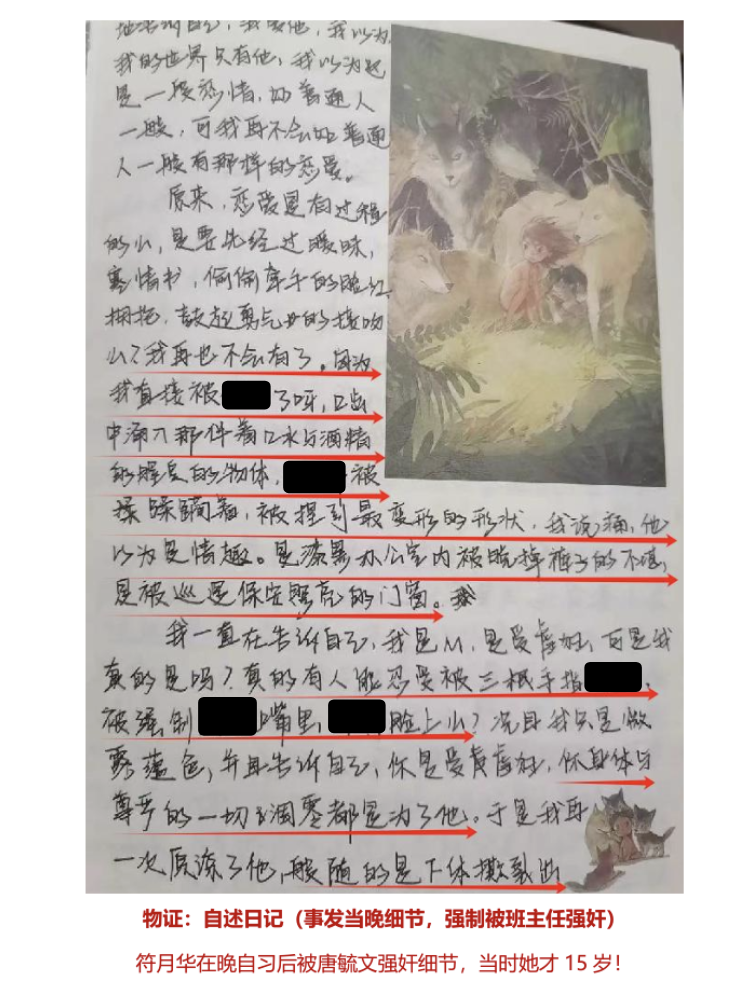 我的世界只有他，我以为这
是一段恋情，如普通人
一般，可我再不会如普通
人一般有那样的恋爱。
原来，恋爱是有过程
的么，是要先经过暧昧，
写情书，偷偷牵手的脸红
拥抱，鼓起勇气的接吻
么？我再也不会有了。因为
我直接被 了呀，口出
中 那伴着口水与酒精
的 的物体， 被
揉 蹂躏着，被捏到最变形的形状，我说痛，他
以为是情趣。是漆黑办公室内被脱掉裤子的不堪，
是被巡逻保安照亮的门窗。
我一直在告诉自己，我是M，是受虐狂，可是我
真的是吗？真的有人能忍受被三根手指 ，
被强制 嘴里， 脸上么？况且我只是做
，并且告诉自己，你是受虐狂，你身体与
尊严的一切 都是为了他。于是我再
一次原谅了他， 随的是下体撕裂
物证：自述日记（事发当晚细节，强制被班主任强奸）
符月华在晚自习后被唐毓文强奸细节，当时她才 15 岁！